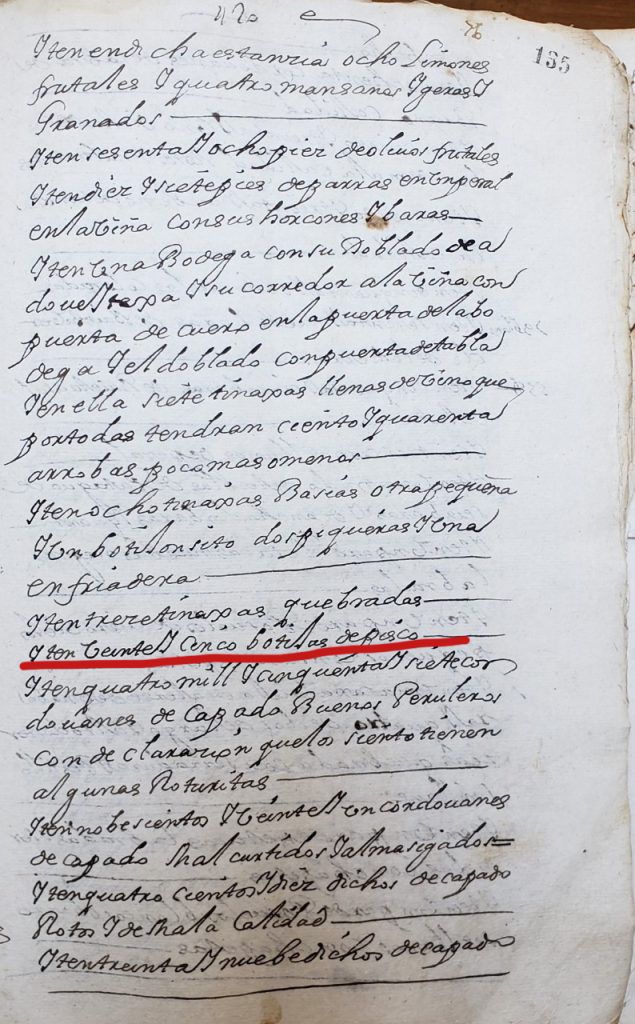 420
76
135
Yten en dicha estanzia ocho Limones
frutales Y quatro mansanos Ygeras Y
Granados
Yten sesenta Y ocho piez de oliuos frutales
Yten diez Y siete pies de parras en Un peral
en la Viña con sus horcones Y baras
Yten Una Bodega con su Doblado de a
doue Y texa Y su corredor a la Viña con
puerta de cuero en la puerta de la bo
dega Y el doblado con puerta de tabla
Y en ella siete tinaxas llenas de Vino que
por todas tendran ciento Y quarenta
arrobas poco mas o menos
Yten ocho tinaxas Basias otra pequeña
Y Un botiLonsito dos piqueras Y Una
enfriadera
Yten trece tinaxas quebradas
Yten Veinte Y Cinco botiLas de pisco
Yten quatro mill Y cinquenta Y siete cor
douanes de Capado Buenos Peruleros
con declarazion que los siento tienen
algunas Roturitas
Yten nobesientos Y Veinte Y Un cordouanes
de capado Mal curtidos Y almasigados=
Yten quatro cientos Y diez dichos de capado
Rotos Y de Mala Calidad
Yten treinta Y nuebe dichos de capado